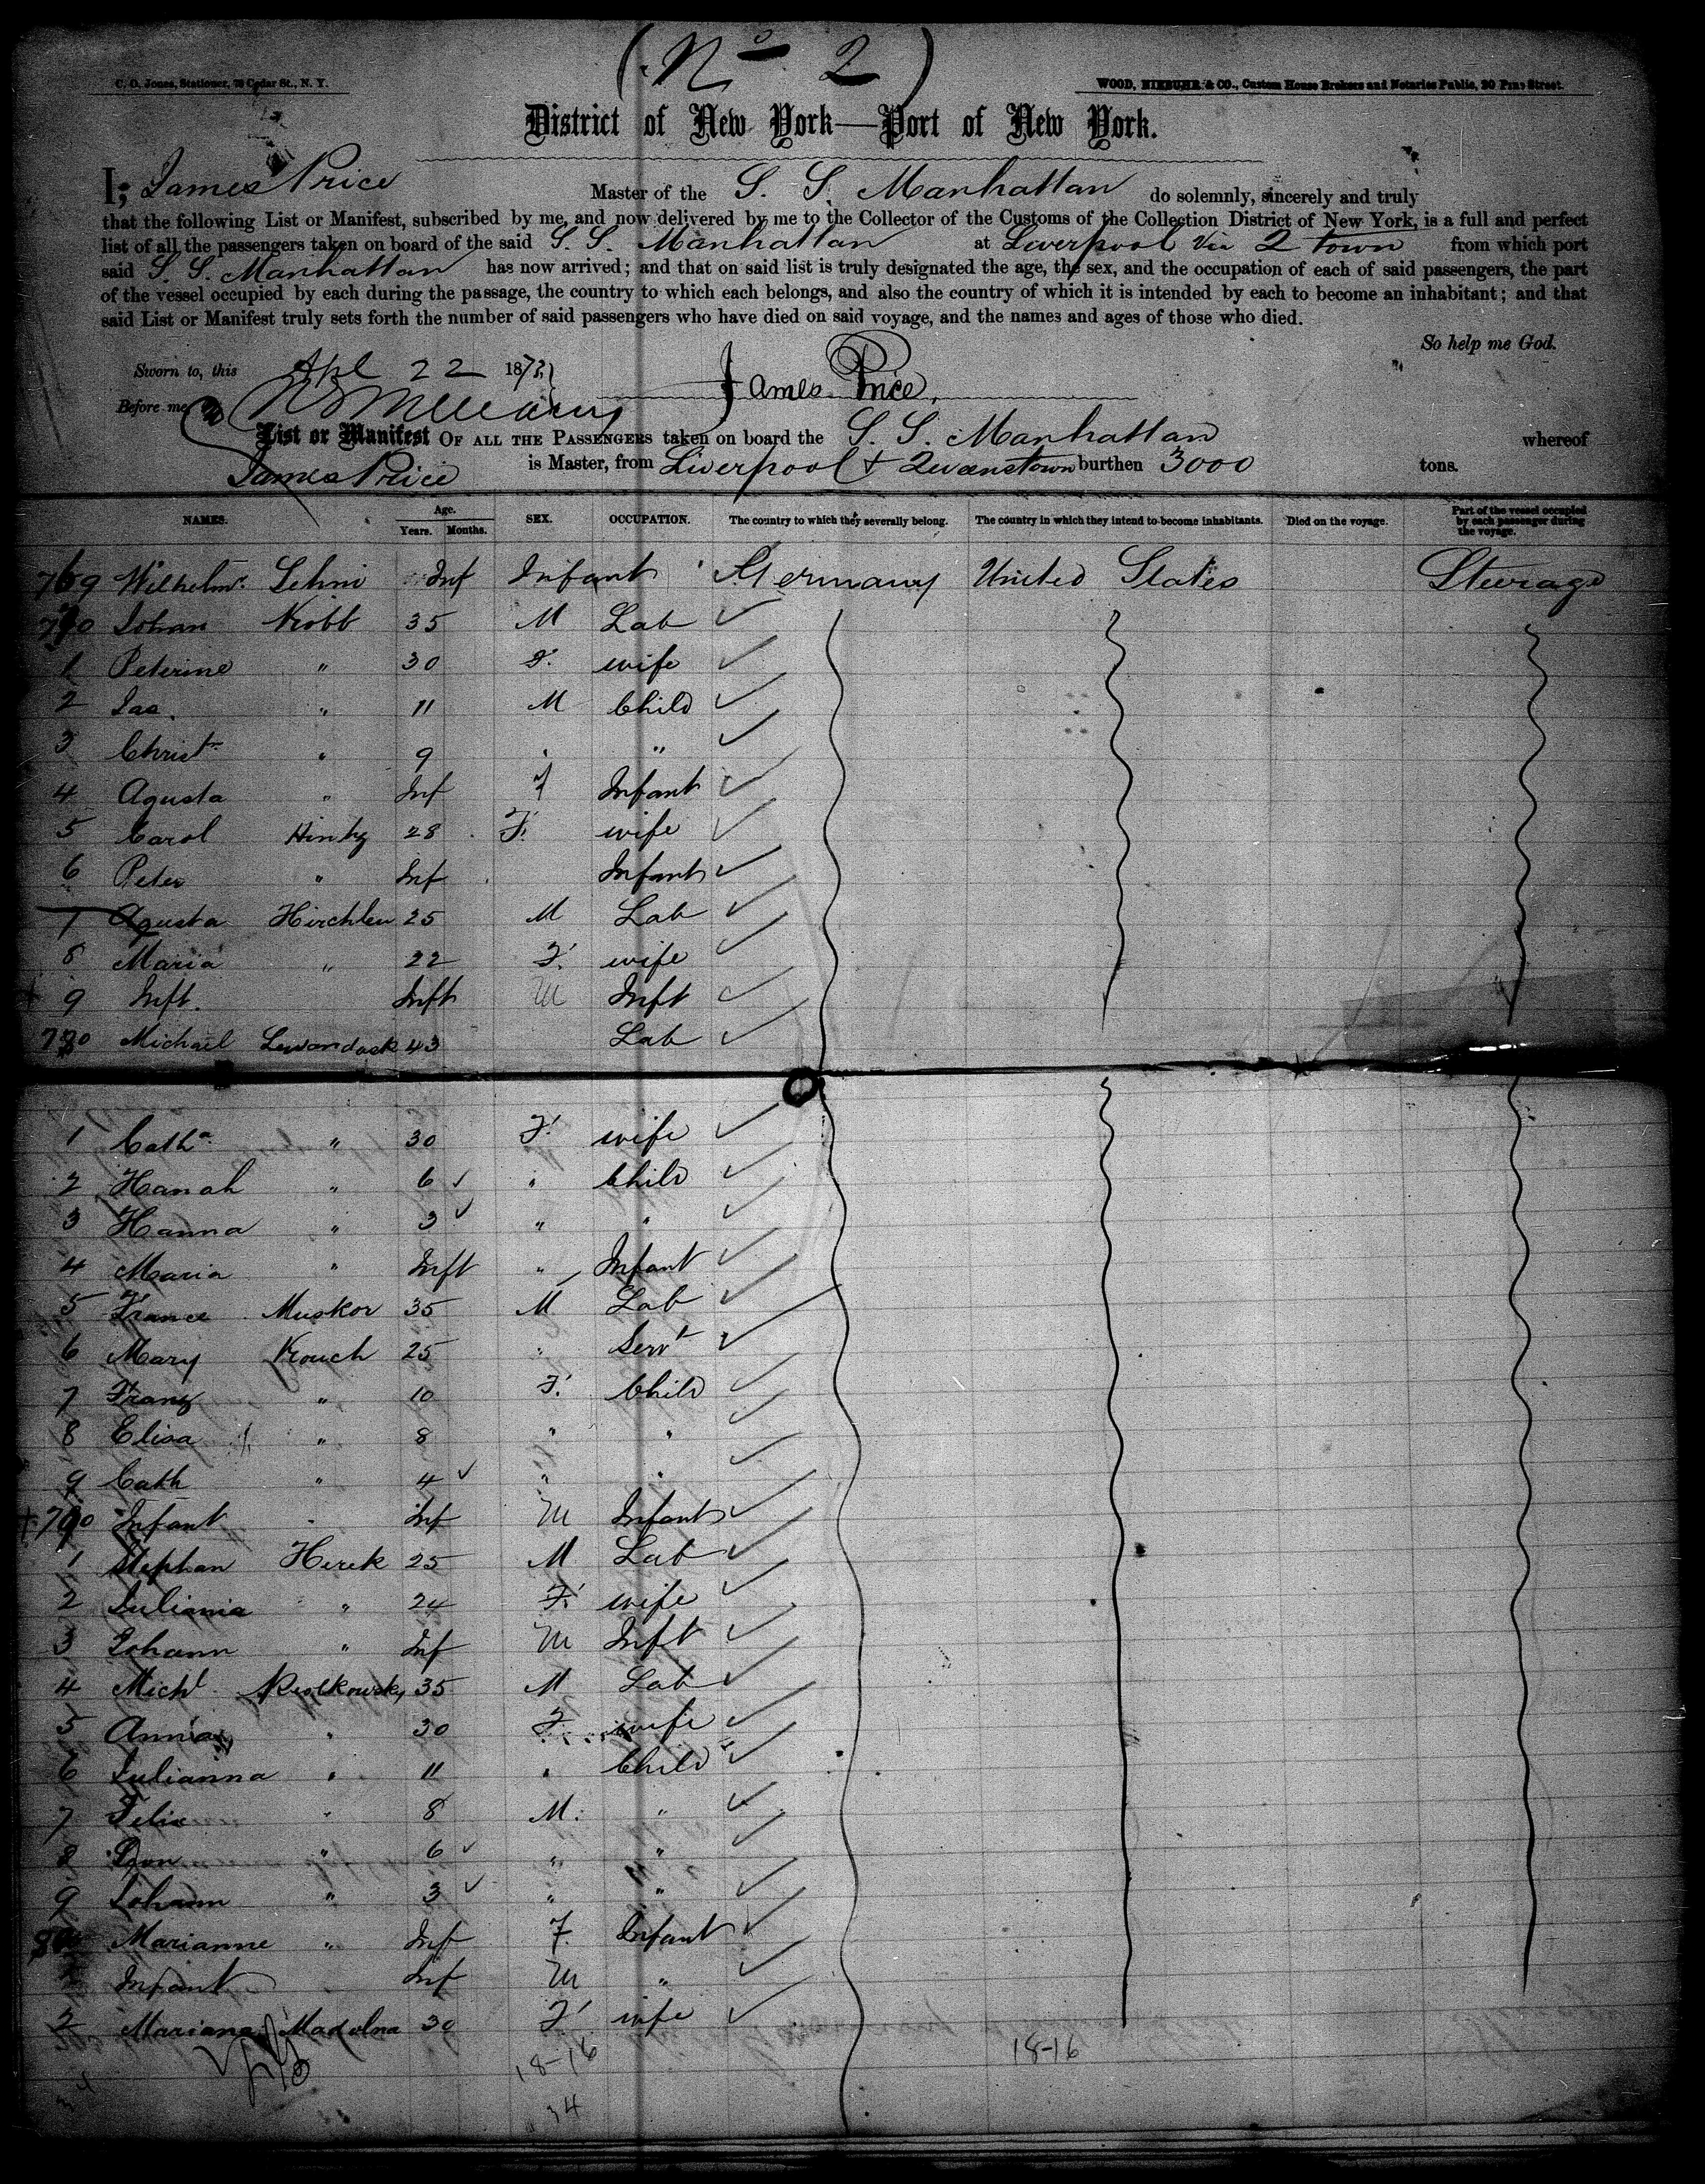 (No 2)
C. O. Jones, Stationer, 76 Cedar St., N. Y.
WOOD, NIEBUHR & CO., Custom House Brokers and Notaries Public, 20 Pine Street.
District of New York—Port of New York.
I, James Price Master of the S. S. Manhattan do solemnly, sincerely and truly
that the following List or Manifest, subscribed by me, and now delivered by me to the Collector of the Customs of the Collection District of New York, is a full and perfect
list of all the passengers taken on board of the said S. S. Manhattan at Liverpool via Q town from which port
said S. S. Manhattan has now arrived; and that on said list is truly designated the age, the sex, and the occupation of each of said passengers, the part
of the vessel occupied by each during the passage, the country to which each belongs, and also the country of which it is intended by each to become an inhabitant; and that
said List or Manifest truly sets forth the number of said passengers who have died on said voyage, and the names and ages of those who died.
So help me God.
Sworn to, this Apl 22 187
James Price.
Before me
List or Manifest OF ALL THE PASSENGERS taken on board the S. S. Manhattan whereof
James Price is Master, from Liverpool & Queenstown burthen 3000 tons.
NAMES. Age. Years. Months. SEX. OCCUPATION. The country to which they severally belong. The country in which they intend to become inhabitants. Died on the voyage. Part of the vessel occupied by each passenger during the voyage.
769 Wilhelm. Lehni Inf Infant Germany United States Steerage
770 Johan Krobb 35 M Lab
1 Peterine " 30 F. wife
2 Jas. " 11 M Child
3 Christ " 9 " "
4 Agusta " Inf f Infant
5 Carol Hinky 28 F. wife
6 Peter " Inf Infant
7 Agusta Hirchlen 25 M Lab
8 Maria " 22 F. wife
9 Inft. Inft M Inft
780 Michael Lewandosk 43 Lab
1 Catha " 30 F. wife
2 Hanah " 6 " Child
3 Hanna " 3 " "
4 Maria " Inft " Infant
5 France Muskor 35 M Lab
6 Mary Krouch 25 " Servt
7 Franz " 10 F. Child
8 Elisa " 8 " "
9 Cath " 4 " "
790 Infant Inf M Infant
1 Stephan Herek 25 M Lab
2 Juliania " 24 F. wife
3 Johann " Inf M Inft
4 Michl 35 M Lab
5 Anna " 30 F. wife
6 Julianna " 11 " Child
7 Felix " 8 M. "
8 " 6 " "
9 Johann " 3 " "
800 Marianne " Inf F. Infant
Infant Inf M "
2 Mariana Madelna 30 F. wife
18-16 18-16
34